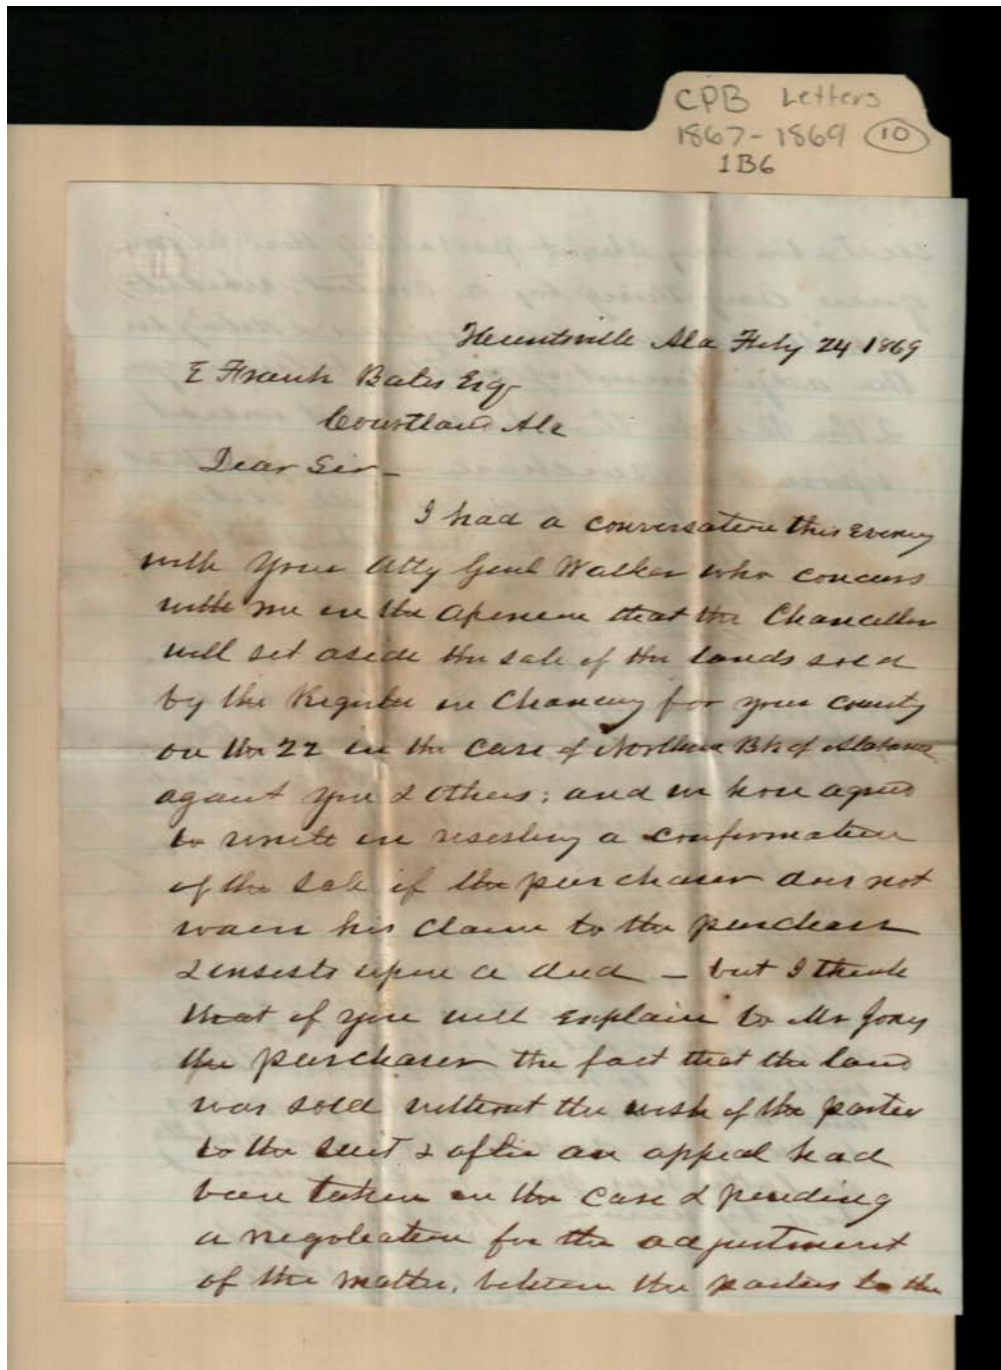 CPB Letters
1867-1869 10
1B6
Huntsville Ala Feby 24 1869
E Frank Bates Esq
Courtland Ala
Dear Sir -
I had a conversation this Evening
with your Atty Genl Walker who concurs
with me in the opinion that the Chancellor
will set aside the sale of the lands sold
by the Register in Chancery for your county
on the 22 in the case of Northern Bk of Alabama
against you & others; and we have agreed
to unite in resisting a confirmation
of the sale if the purchaser does not
waive his claim to the purchase
& insists upon a deed - but I think
that if you will explain to Mr Jones
the purchaser the fact that the land
was sold without the wish of the parties
to the suit & after an appeal had
been taken in the case & pending
a negotiation for the adjustment
of the matter, between the parties to the